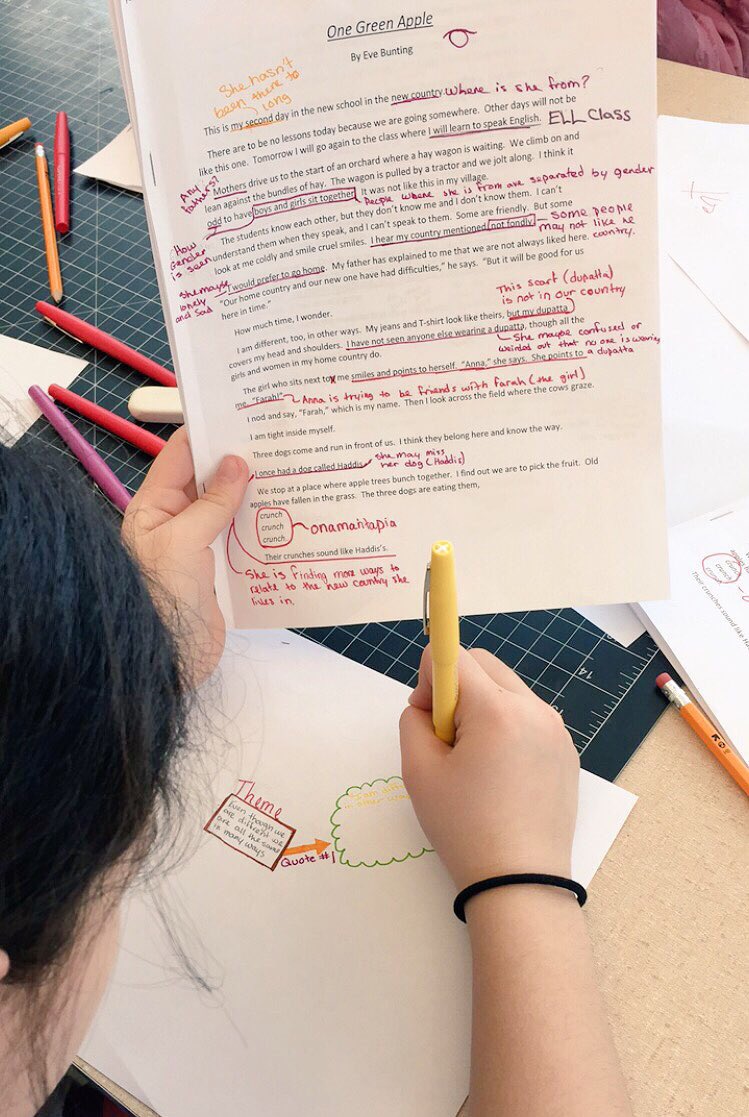 One Green Apple
By Eve Bunting
She hasn't
been there to
long
This is my second day in the new school in the new country. Where is she from?
There are to be no lessons today because we are going somewhere. Other days will not be
like this one. Tomorrow I will go again to the class where I will learn to speak English. ELL Class
Any
fathers?
Mothers drive us to the start of an orchard where a hay wagon is waiting. We climb on and
lean against the bundles of hay. The wagon is pulled by a tractor and we jolt along. I think it
odd to have boys and girls sit together. It was not like this in my village.
People where she is from are separated by gender
How
Gender
is seen
The students know each other, but they don't know me and I don't know them. I can't
understand them when they speak, and I can't speak to them. Some are friendly. But some
look at me coldly and smile cruel smiles. I hear my country mentioned, not fondly.
some people
may not like he
country.
She maybe
lonely
and sad
I would prefer to go home. My father has explained to me that we are not always liked here.
"Our home country and our new one have had difficulties," he says. "But it will be good for us
here in time."
How much time, I wonder.
This scarf (dupatta)
is not in our country
I am different, too, in other ways. My jeans and T-shirt look like theirs, but my dupatta
covers my head and shoulders. I have not seen anyone else wearing a dupatta, though all the
girls and women in my home country do.
She maybe confused or
weirded out that no one is wearing
a dupatta
The girl who sits next to me smiles and points to herself. "Anna," she says. She points to
me. "Farah!" Anna is trying to be friends with Farah (the girl)
I nod and say, "Farah," which is my name. Then I look across the field where the cows graze.
I am tight inside myself.
Three dogs come and run in front of us. I think they belong here and know the way.
I once had a dog called Haddis. she may miss
her dog (Haddis)
We stop at a place where apple trees bunch together. I find out we are to pick the fruit. Old
apples have fallen in the grass. The three dogs are eating them,
crunch
crunch onamantapia
crunch.
Their crunches sound like Haddis's.
She is finding more ways to
relate to the new country she
lives in.
crunch
crunch
Their crunches sound like
14
Theme
Even though we
are different we
are all the same
in many ways
Quote #1
in other